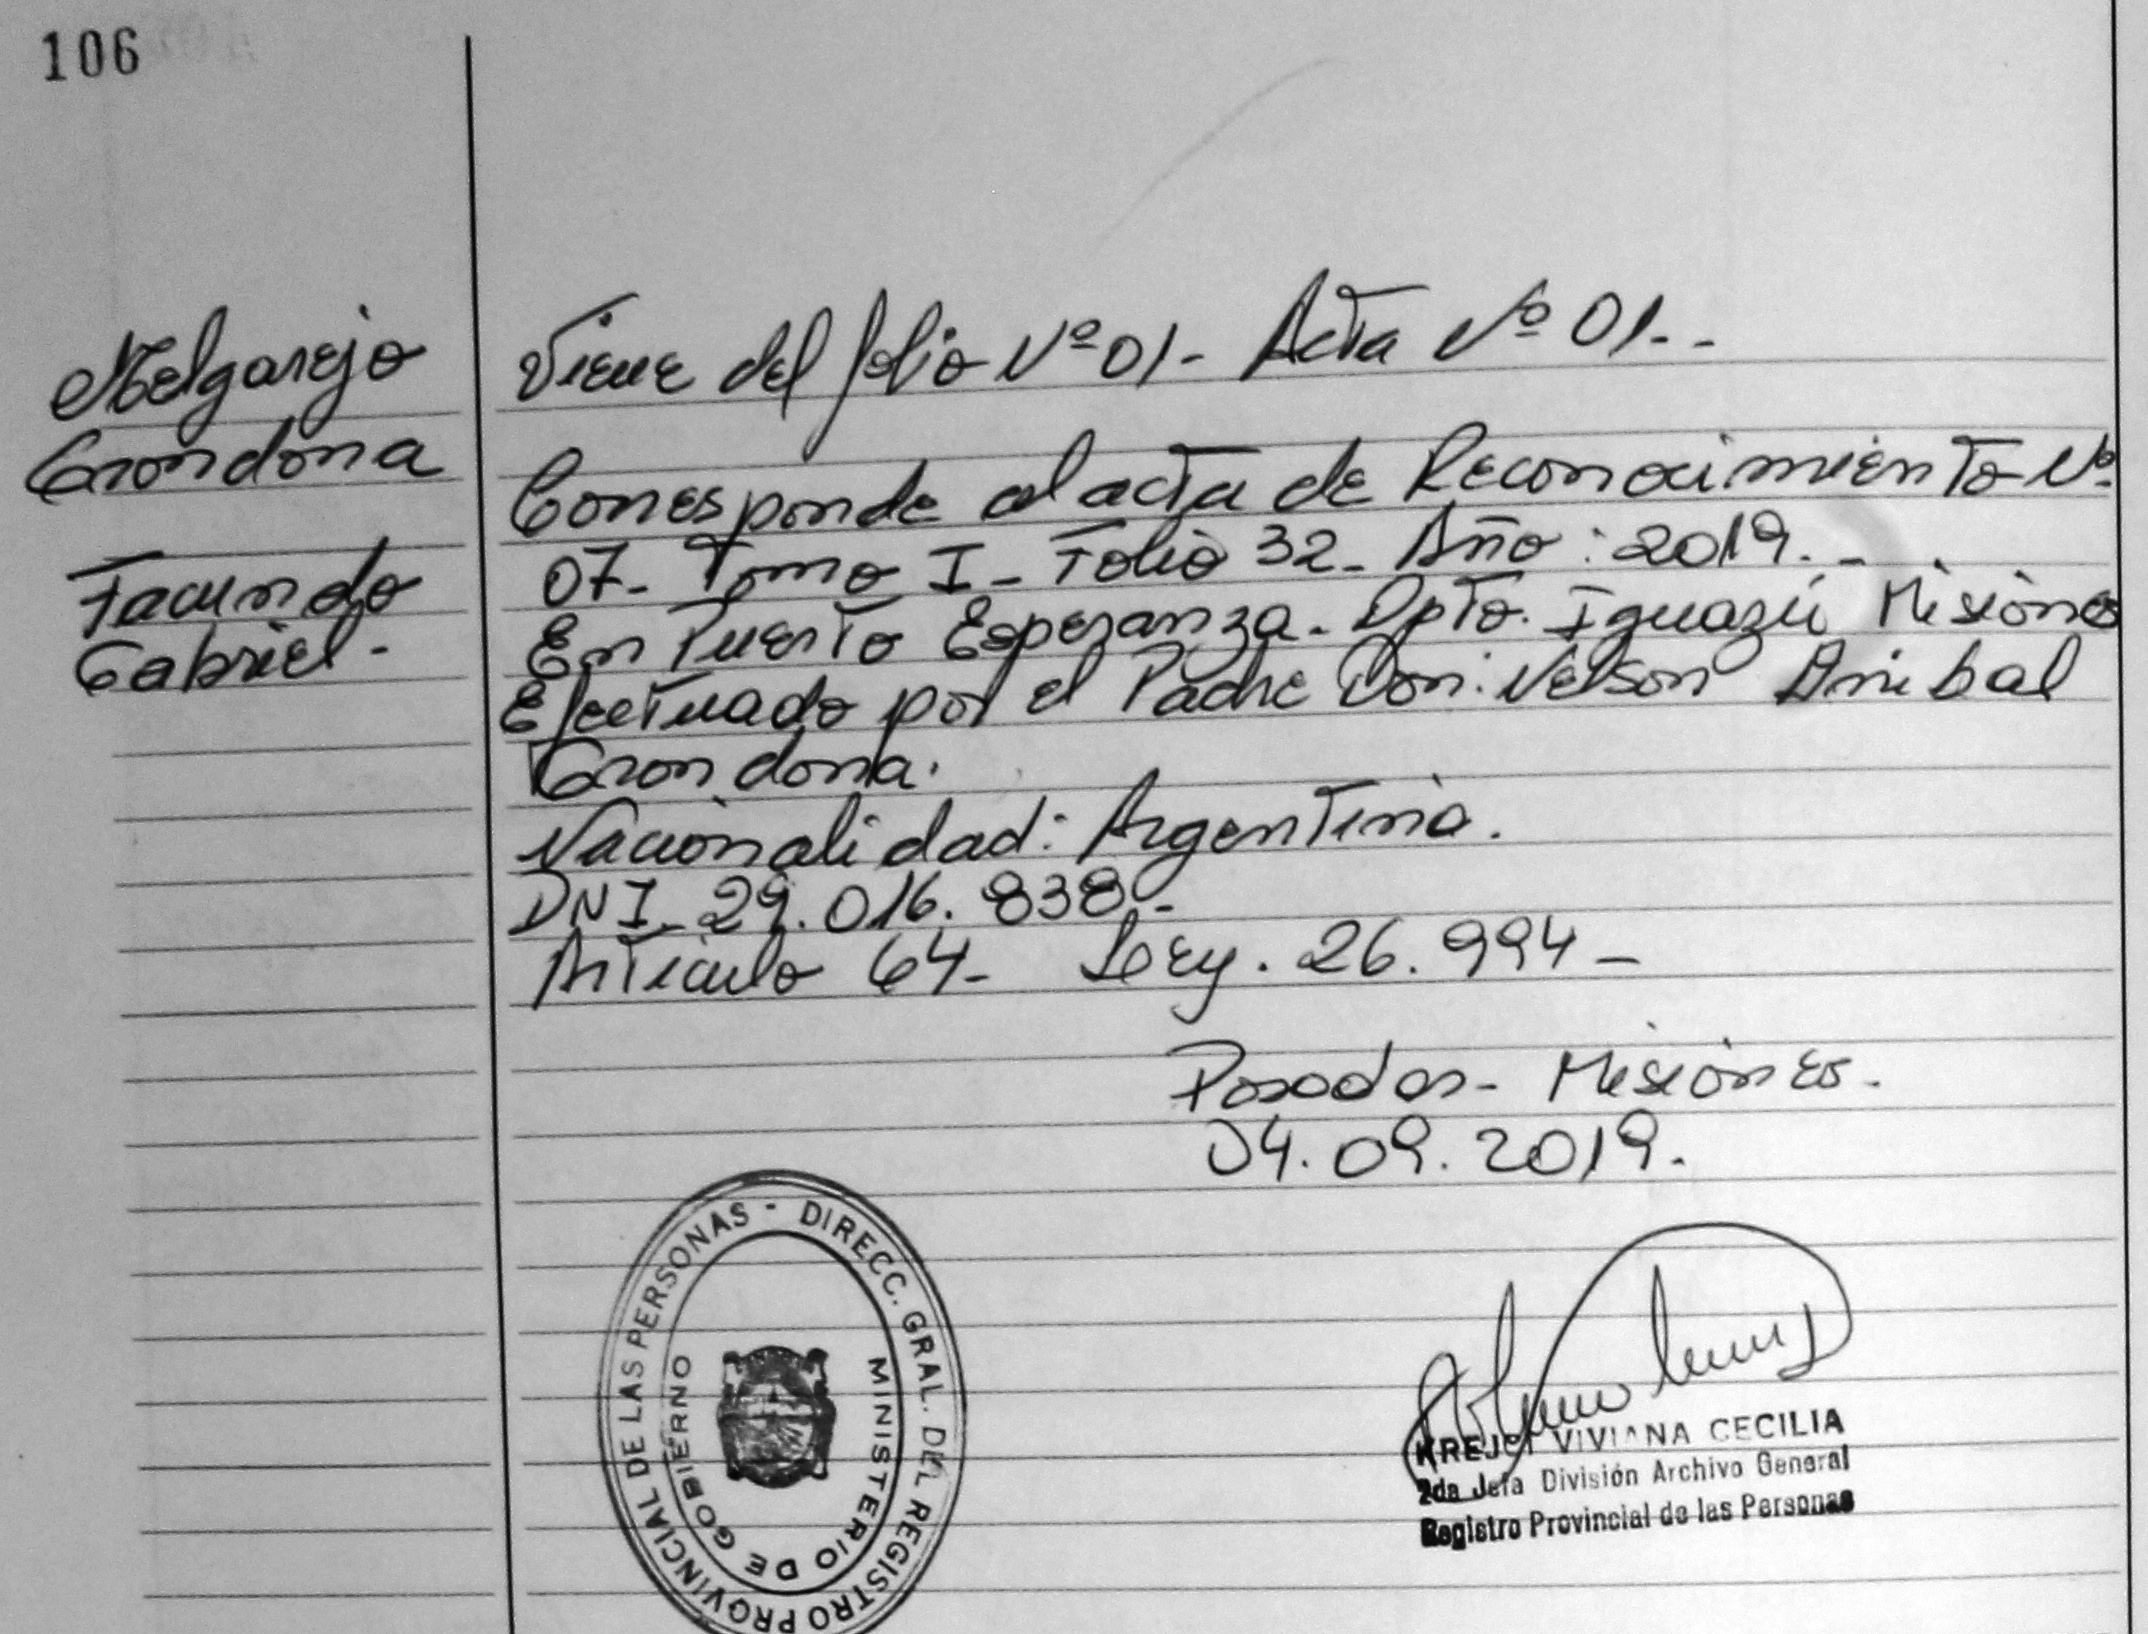 106
Melgarejo
Grondona
Facundo
Gabriel.-
Viene del folio Nº 01- Acta Nº 01.-
Corresponde al acta de Reconocimiento Nº
07- Tomo I- Folio 32- Año: 2019.-
En Puerto Esperanza- Dpto. Iguazú Misiones
Efectuado por el Padre Don: Nelson Anibal
Grondona.
Nacionalidad: Argentina.
DNI- 29.016.838.-
Articulo 64- Ley. 26.994-
Posadas- Misiones.
04.09.2019.
DIRECC. GRAL. DEL REGISTRO PROVINCIAL DE LAS PERSONAS -
MINISTERIO DE GOBIERNO
KREJCI VIVIANA CECILIA
2da Jefa División Archivo General
Registro Provincial de las Personas